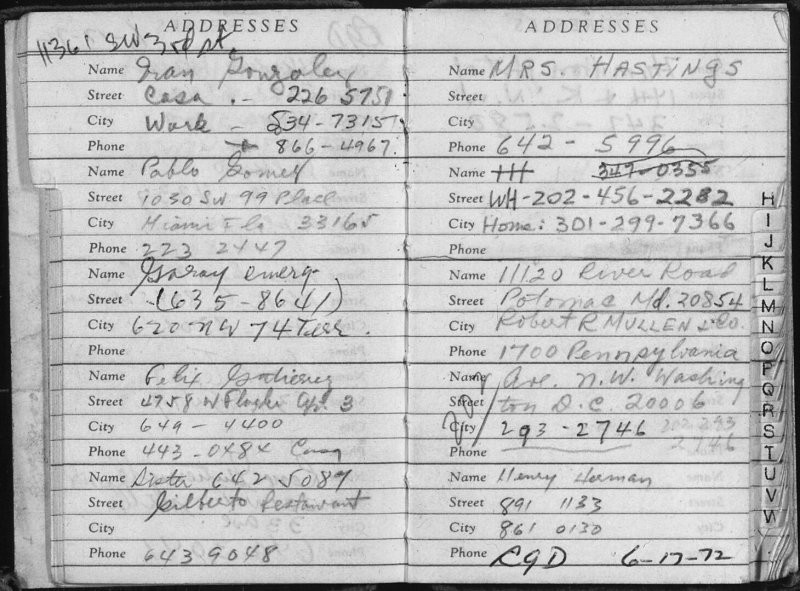 ADDRESSES
11361 SW 3rd st.
Name Ivan Gonzalez
Street Casa - 226 5751
City Work - 534-7315
Phone 866-4967.
Name Pablo Gomez
Street 1030 SW 99 Place
City Miami Fla 33165
Phone 223 2447
Name Garay emerg-
Street (635-8641)
City 620 NW 74 Terr.
Phone
Name Felix Gutierrez
Street 4758 W Flagler 3
City 649-4400
Phone 443-0484 Casa
Name Sister 642 5089
Street Gilberto Restaurant
City
Phone 643 9048
ADDRESSES
Name MRS. HASTINGS
Street
City
Phone 642-5996
Name HH 347-0355
Street WH-202-456-2282
City Home: 301-299-7366
Phone
Name 11120 River Road
Street Potomac Md. 20854
City Robert R MULLEN & Co.
Phone 1700 Pennsylvania
Name Ave. N.W. Washing
Street ton D.C. 20006
City 202/293-2746 202 293
Phone 2746
Name Henry Herman
Street 891 1133
City 861 0130
Phone 6-17-72
H
I
J
K
L
M
N
O
P
Q
R
S
T
U
V
W